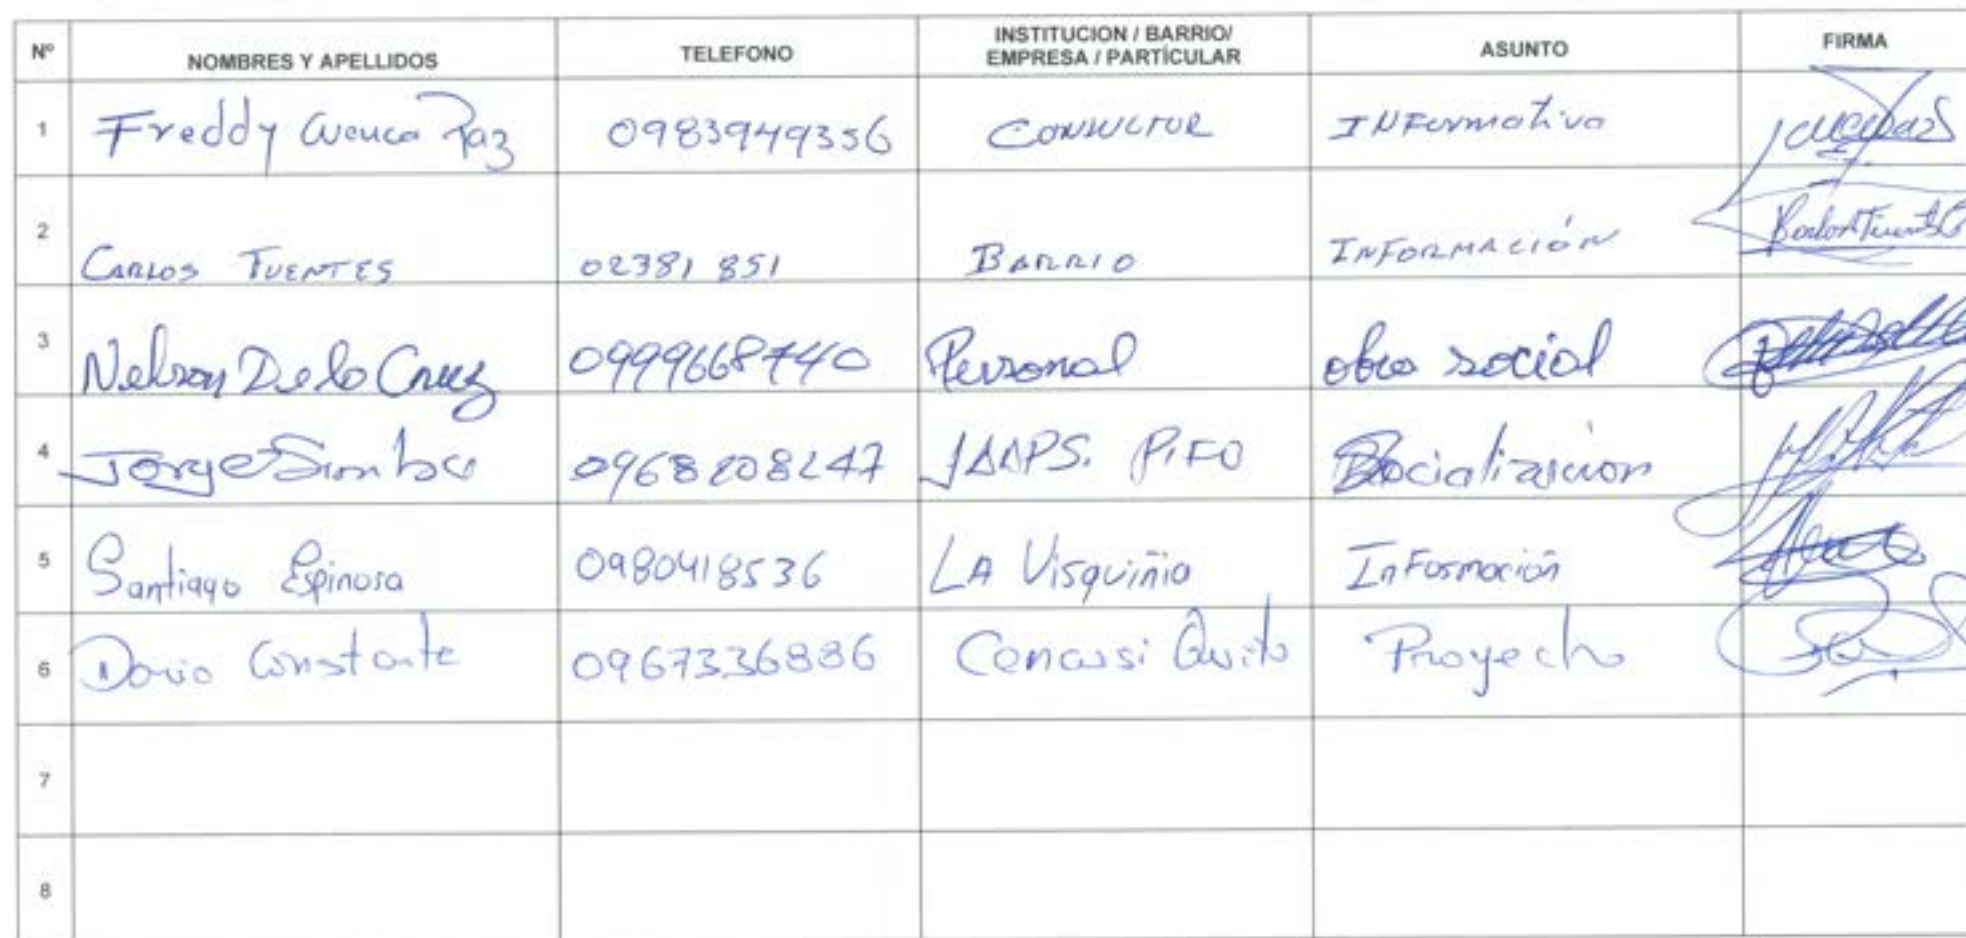 Nº NOMBRES Y APELLIDOS TELEFONO INSTITUCION / BARRIO/ EMPRESA / PARTÍCULAR ASUNTO FIRMA
1 Freddy Cuenca Paz 0983949356 CONSULTOR INFormativa
2 CARLOS FUENTES 02381 851 BARRIO INFORMACIÓN
3 Nelson De la Cruz 0999668740 Personal obra social
4 Jorge Simba 0968208247 JAAPS. PIFO Socialización
5 Santiago Espinosa 0980418536 LA Visquiñia InFormación
6 Dario Constante 0967336886 Quito Proyecto
7
8